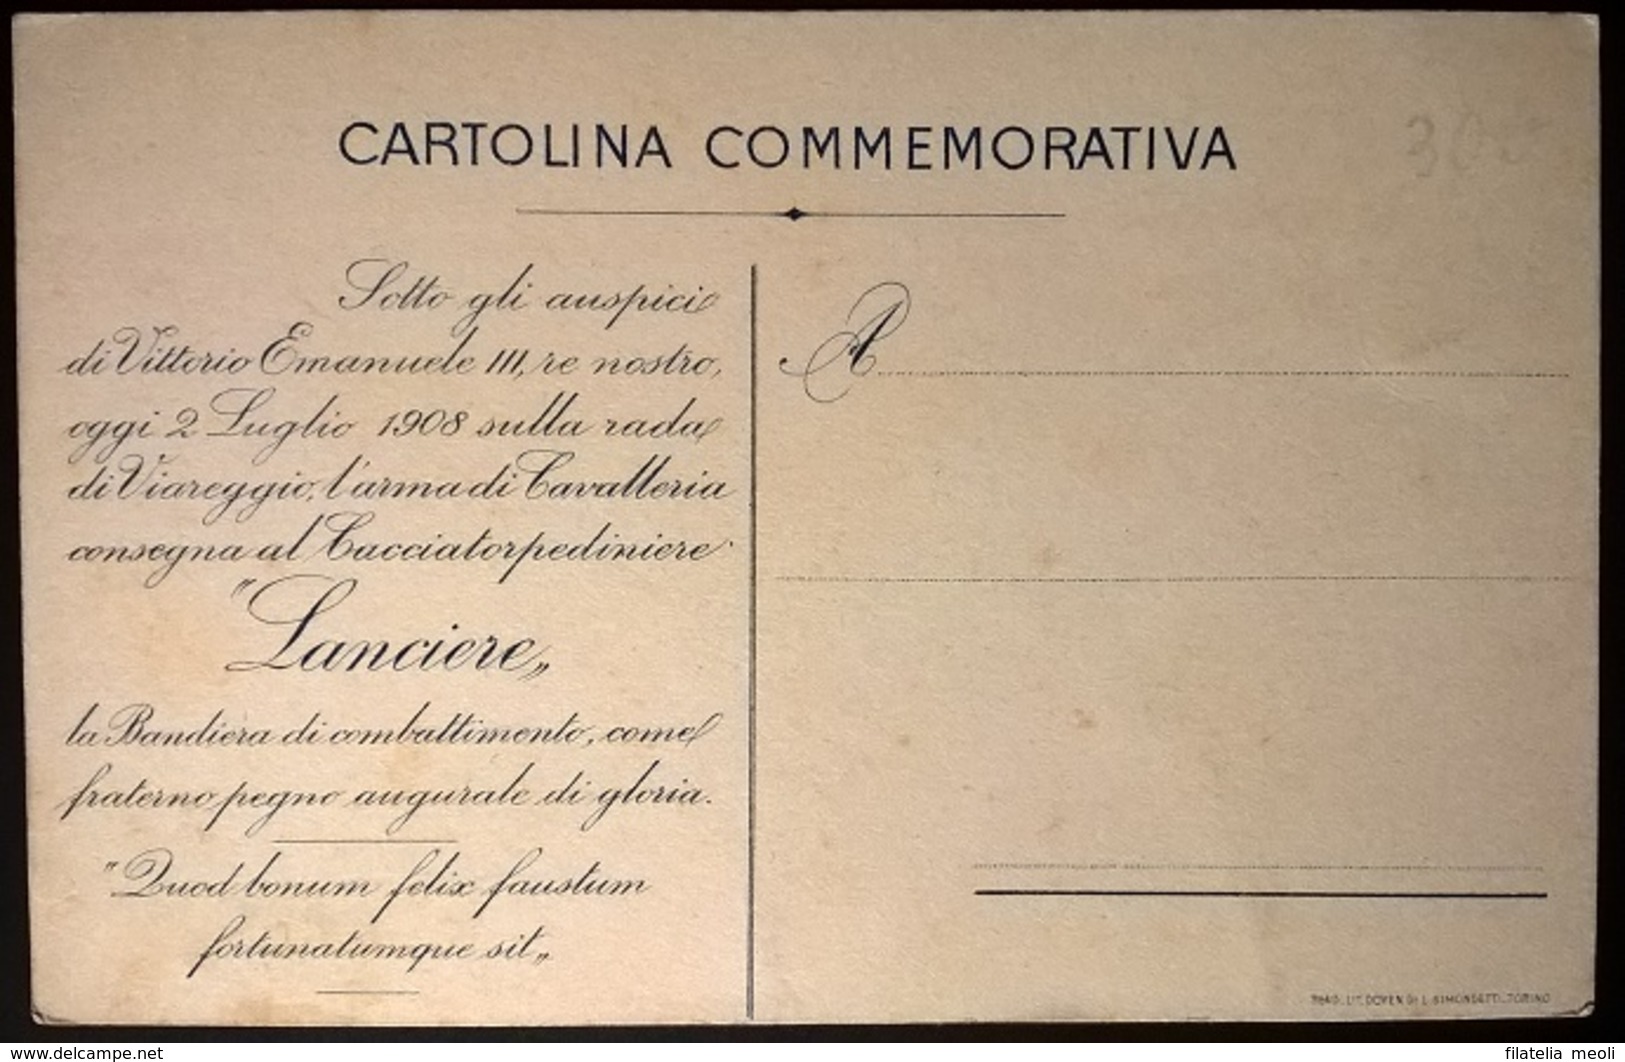 CARTOLINA COMMEMORATIVA
Sotto gli auspici
di Vittorio Emanuele III, re nostro,
oggi 2 Luglio 1908 sulla rada
di Viareggio, l'arma di Cavalleria
consegna al Cacciatorpediniere
"Lanciere„
la Bandiera di combattimento, come
fraterno pegno augurale di gloria.
"Quod bonum felix faustum
fortunatumque sit„
A
LIT. DOYEN DI L. SIMONDETTI-TORINO
www.delcampe.net
filatelia meoli